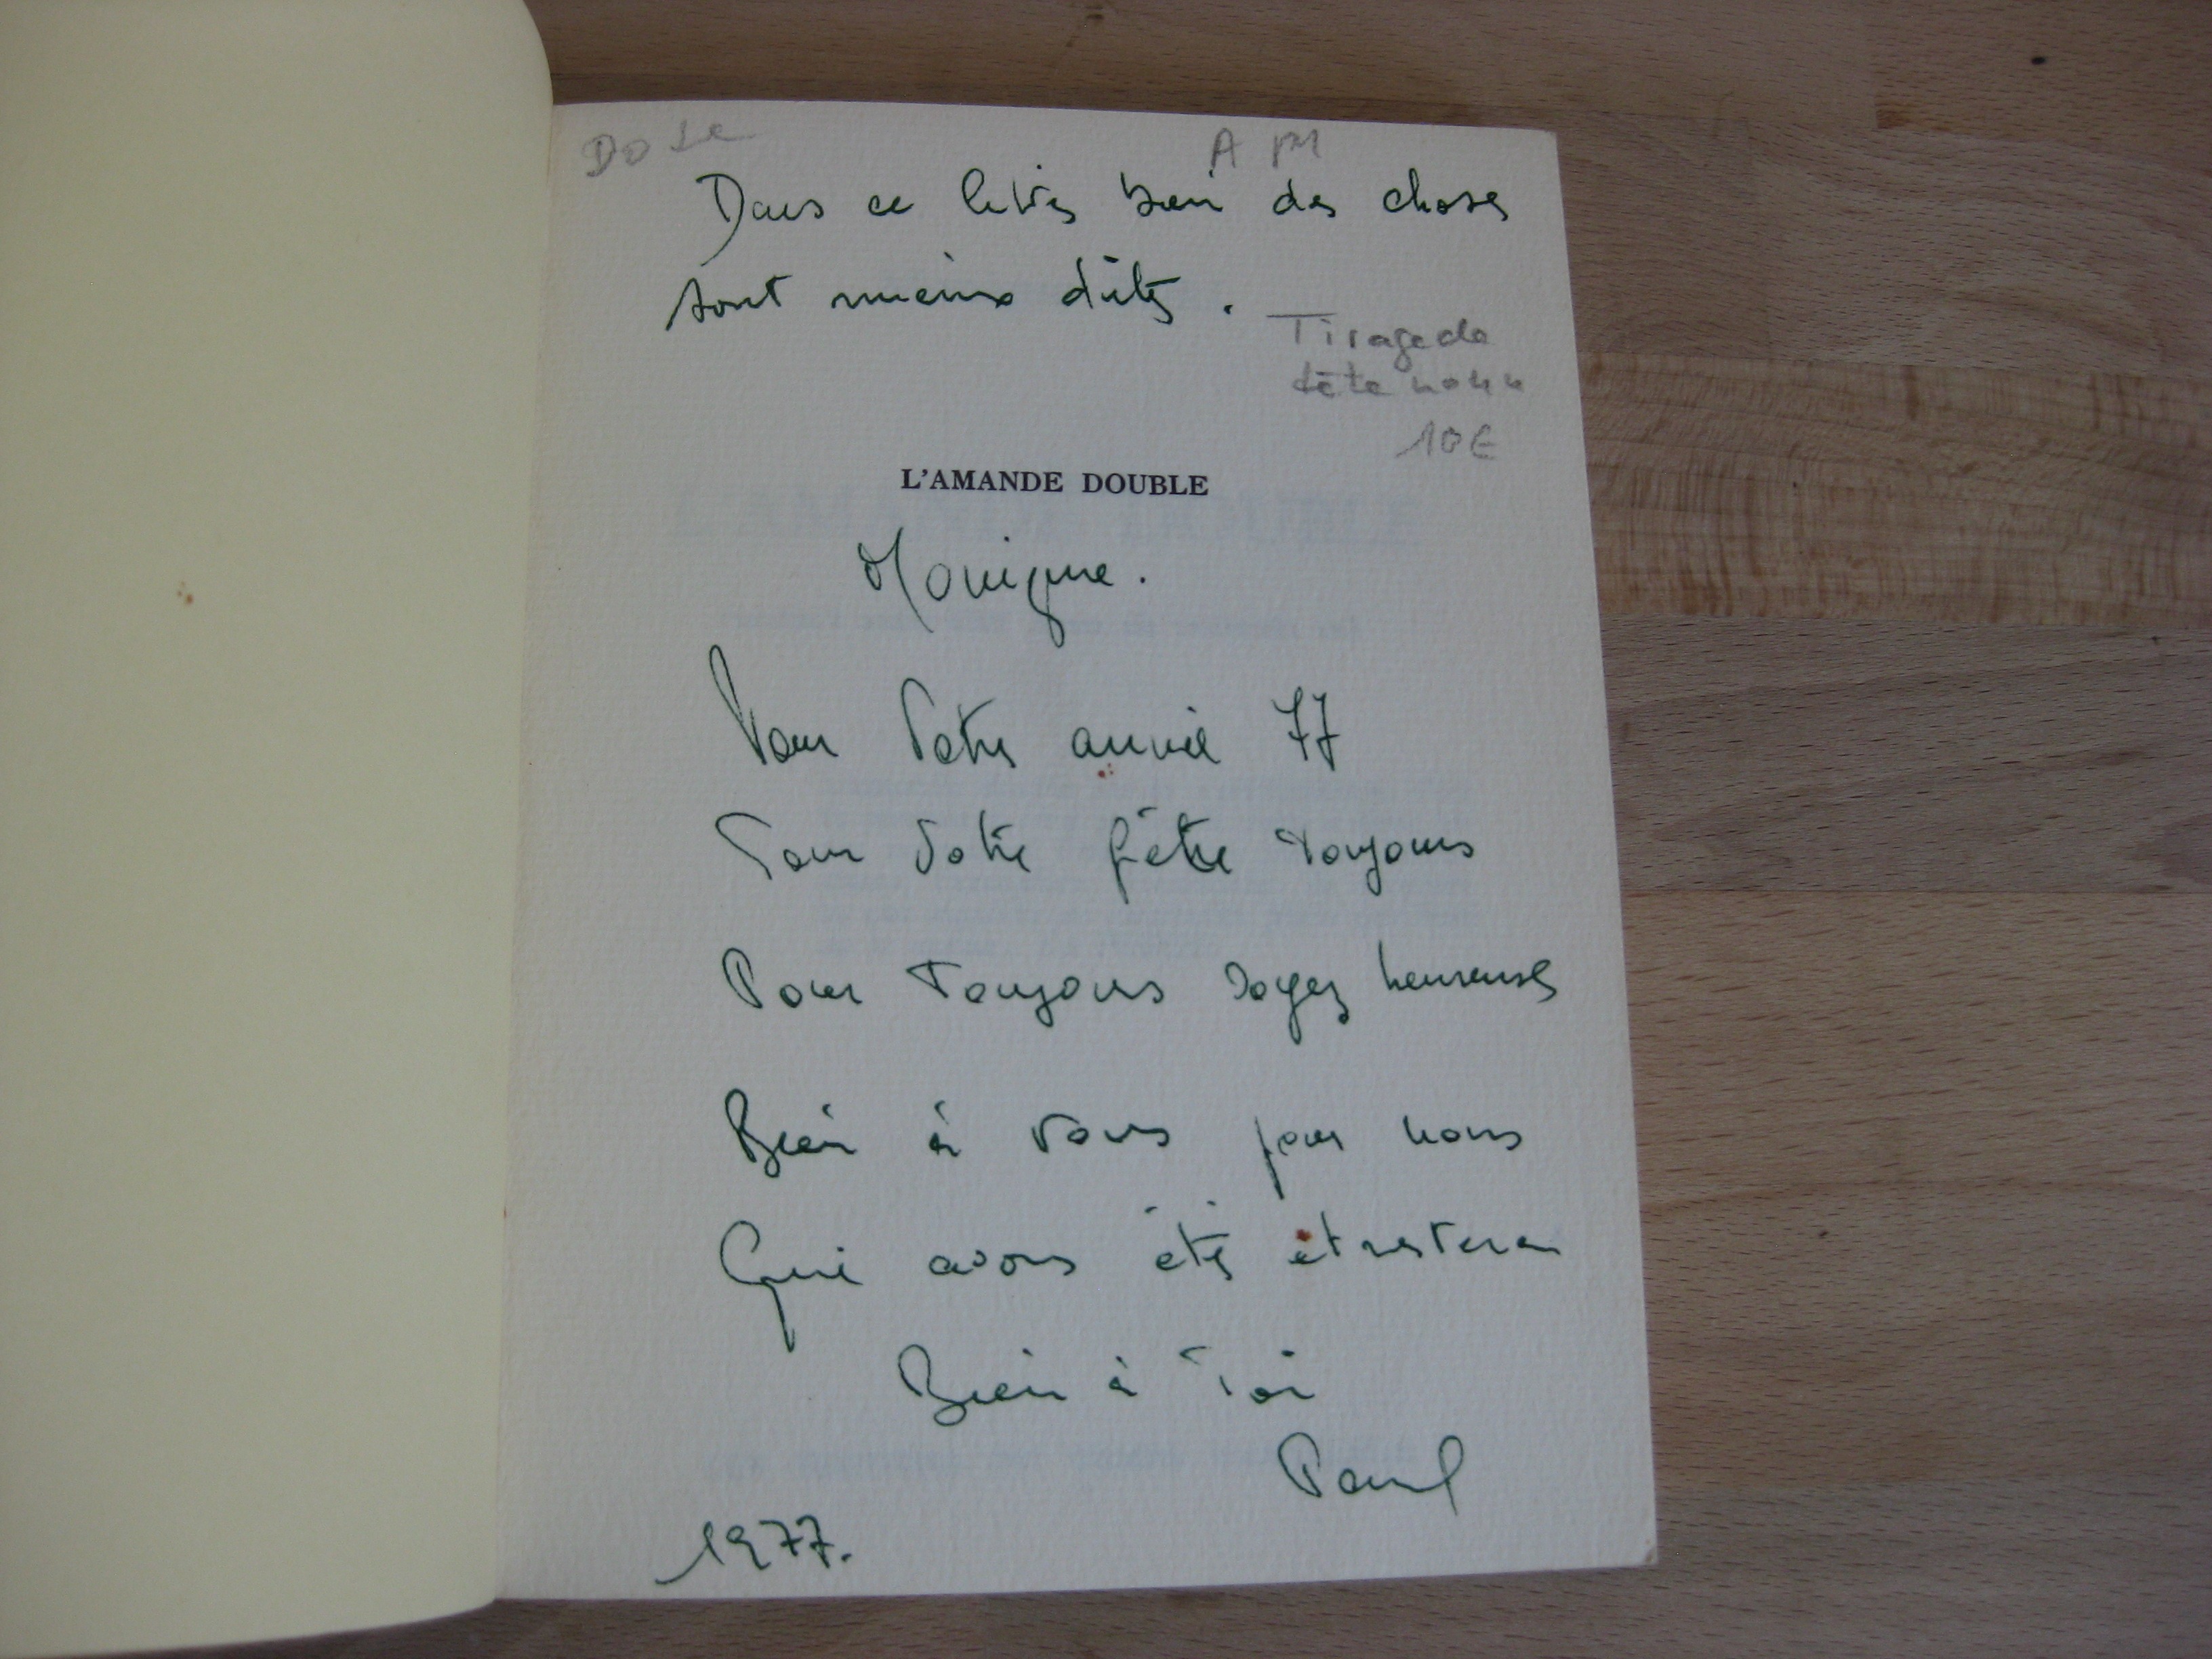 A M
Dans ce livre bien des choses
sont mieux dites.
Tirage de
tête num
10€
L'AMANDE DOUBLE
Monique.
Pour Votre année 77
Pour Votre fête Toujours
Pour Toujours soyez heureuse
Bien à vous pour nous
Qui avons été et
Bien à Toi
Paul
1977.